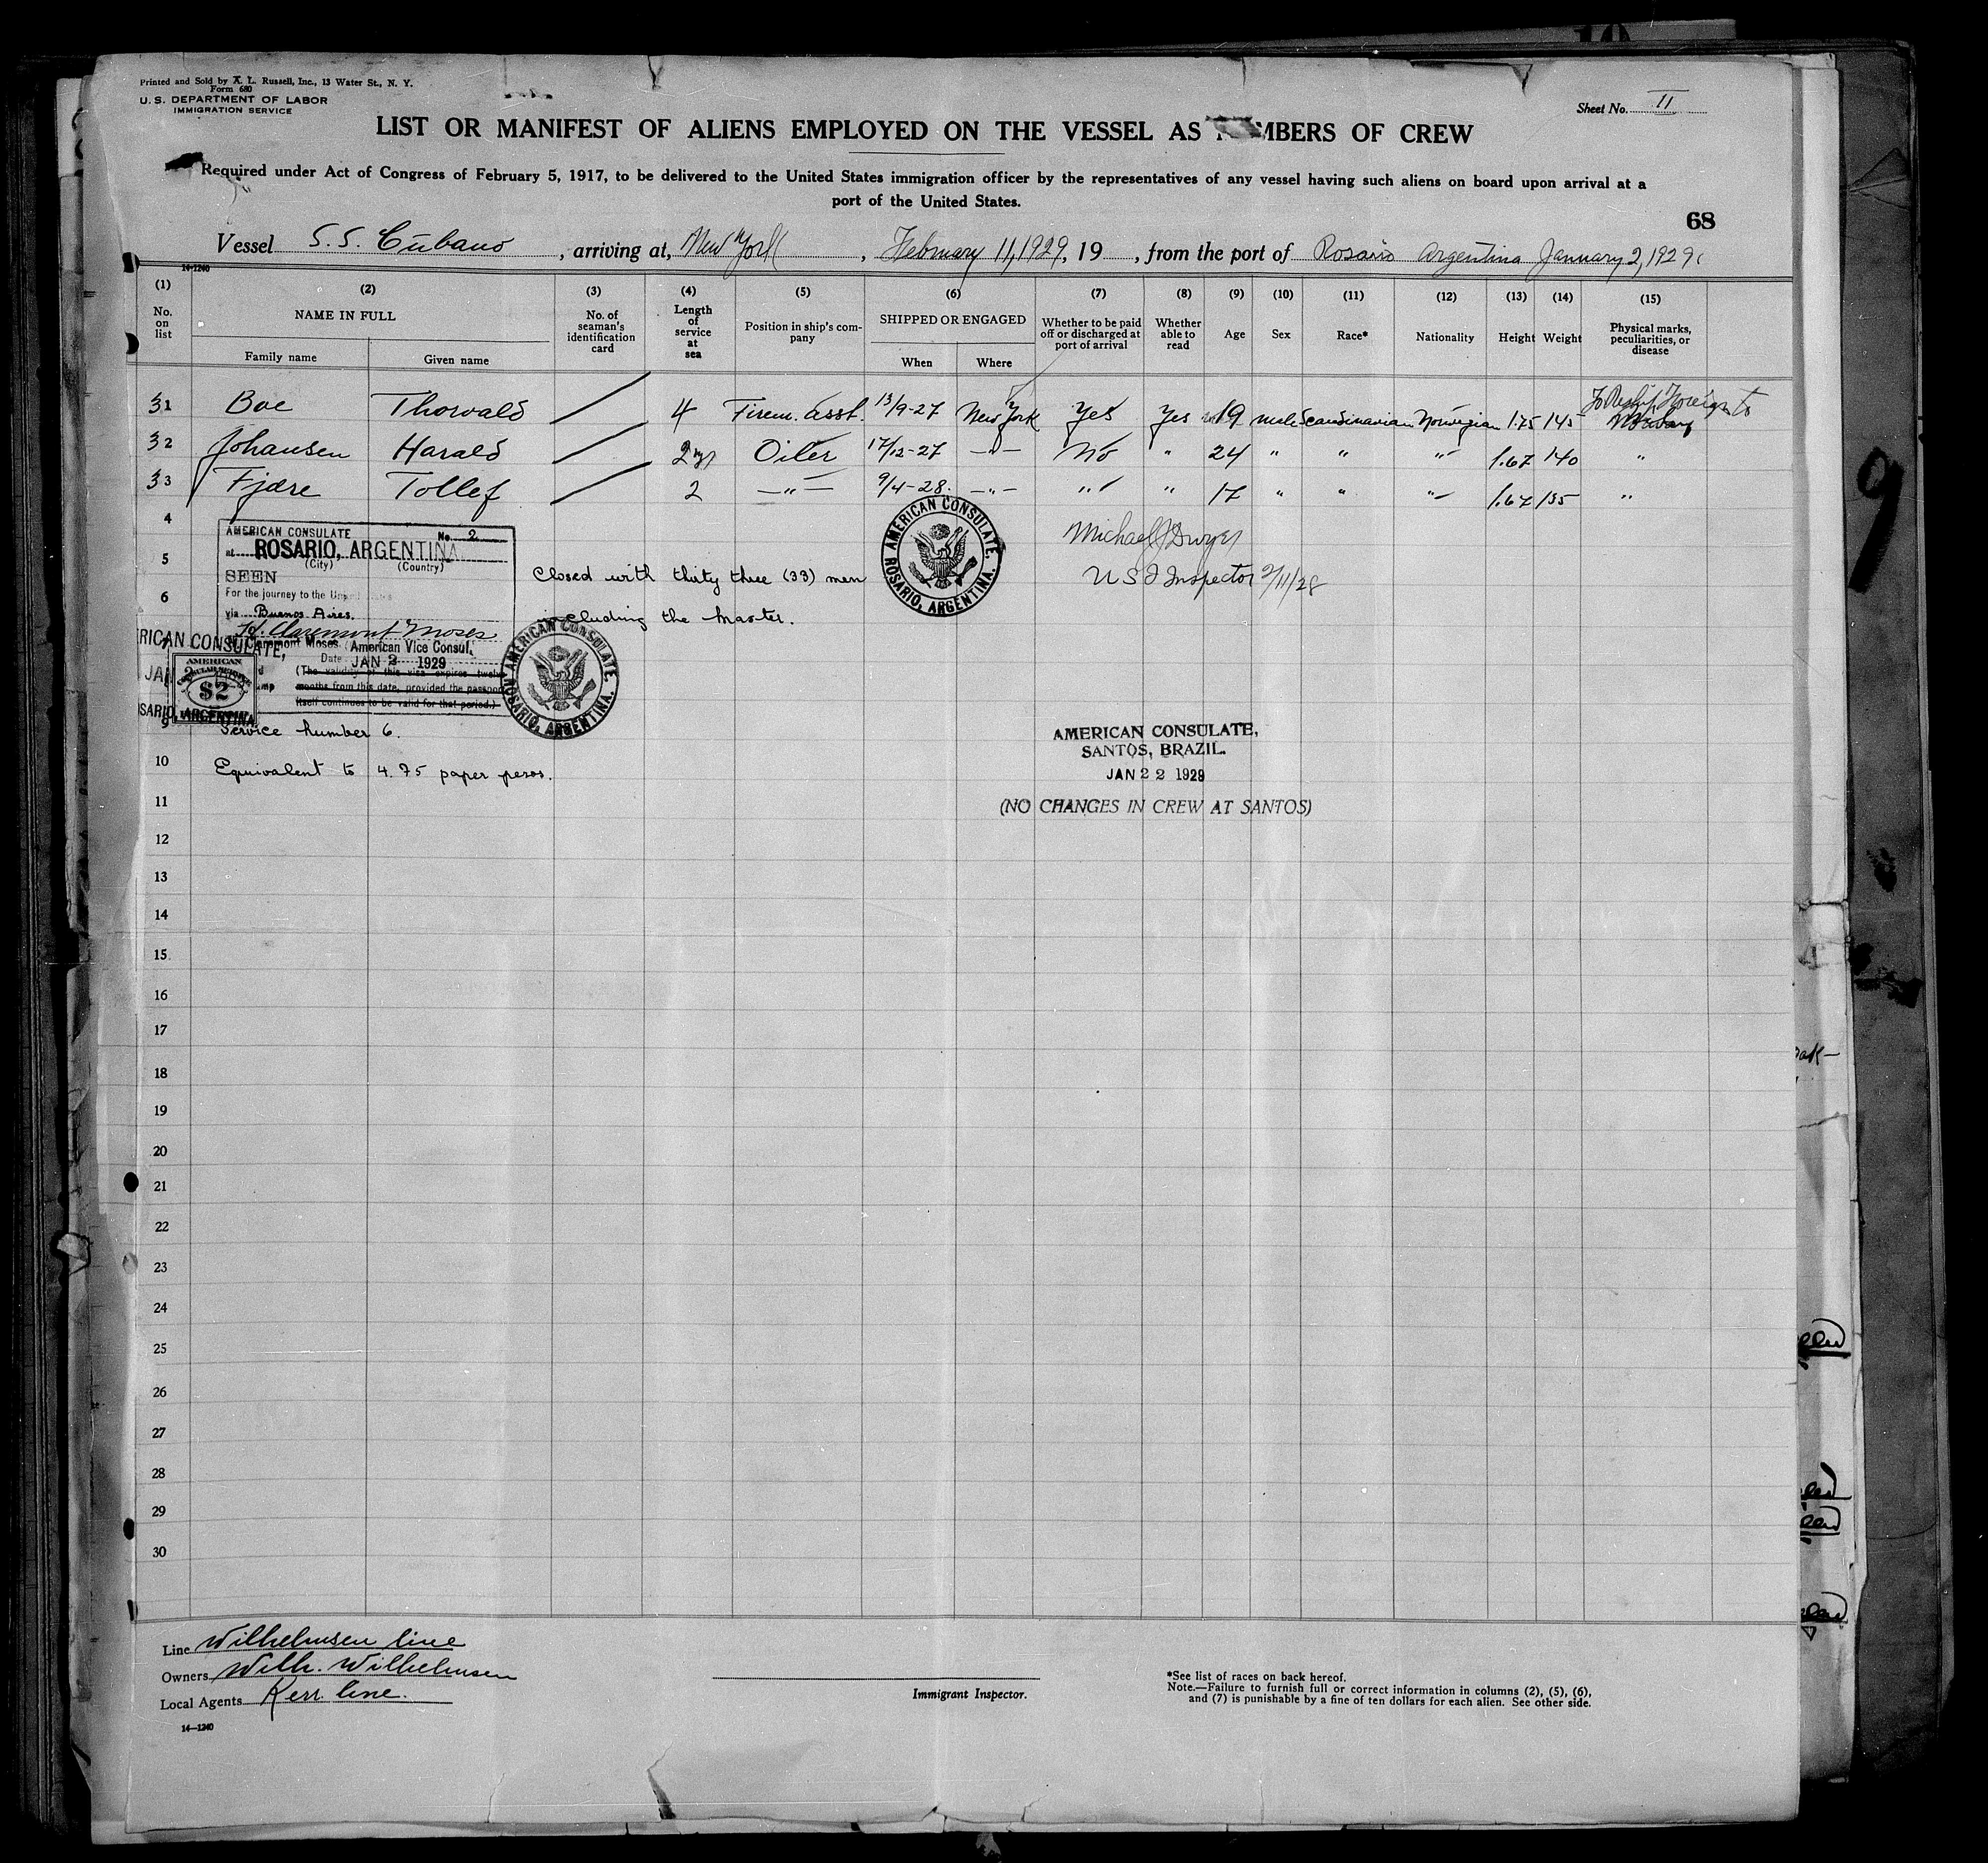 Printed and Sold by A. L. Russell, Inc., 13 Water St., N. Y.
Form 680
U. S. DEPARTMENT OF LABOR
IMMIGRATION SERVICE
Sheet No. II
LIST OR MANIFEST OF ALIENS EMPLOYED ON THE VESSEL AS MEMBERS OF CREW
Required under Act of Congress of February 5, 1917, to be delivered to the United States immigration officer by the representatives of any vessel having such aliens on board upon arrival at a
port of the United States.
68
Vessel S.S. Cubano, arriving at, New York, February 11, 1929, 19 , from the port of Rosario Argentina January 2, 1929
14-1240
(1) (2) (3) (4) (5) (6) (7) (8) (9) (10) (11) (12) (13) (14) (15)
No. on list
NAME IN FULL
Family name Given name
No. of seaman's identification card
Length of service at sea
Position in ship's company
SHIPPED OR ENGAGED
When Where
Whether to be paid off or discharged at port of arrival
Whether able to read
Age Sex Race* Nationality Height Weight
Physical marks, peculiarities, or disease
31 Boe Thorvald 4 Firem. asst. 13/9-27 New York Yes Yes 19 male Scandinavian Norwegian 1.75 145 To Reship Foreign
32 Johansen Harald 2 yr Oiler 17/12-27 —"— No " 24 " " " 1.67 140 "
33 Fjære Tollef 2 —"— 9/4-28. —"— " " 17 " " " 1.67 135 "
4
5
6
AMERICAN CONSULATE No. 2
at ROSARIO, ARGENTINA.
(City) (Country)
SEEN
For the journey to the United States
via Buenos Aires.
H. Claremont Moses
Claremont Moses American Vice Consul.
Date JAN 2 1929
(The validity of this visa expires twelve
months from this date, provided the passport
itself continues to be valid for that period.)
AMERICAN CONSULATE,
JAN 2
ROSARIO, ARGENTINA
AMERICAN
$2
Closed with thirty three (33) men
including the master.
AMERICAN CONSULATE, ROSARIO, ARGENTINA.
AMERICAN CONSULATE, ROSARIO, ARGENTINA.
Michael J Dwyer
U S I Inspector 2/11/28
9 Service number 6.
10 Equivalent to 4.75 paper pesos.
AMERICAN CONSULATE,
SANTOS, BRAZIL.
JAN 22 1929
(NO CHANGES IN CREW AT SANTOS)
11
12
13
14
15
16
17
18
19
20
21
22
23
24
25
26
27
28
29
30
Line Wilhelmsen line
Owners Wilh. Wilhelmsen
Local Agents Kerr line.
14—1240
Immigrant Inspector.
*See list of races on back hereof.
Note.—Failure to furnish full or correct information in columns (2), (5), (6),
and (7) is punishable by a fine of ten dollars for each alien. See other side.
9